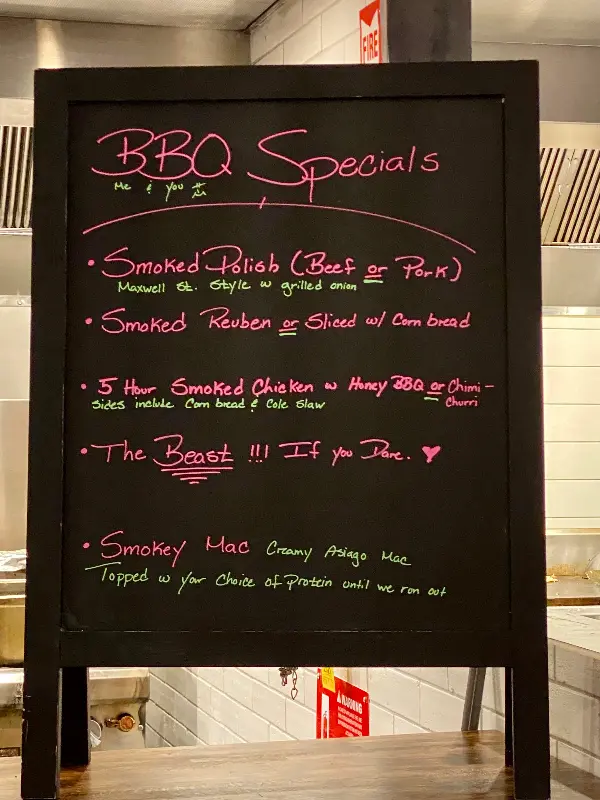 FIRE
BBQ Specials
Me & You
• Smoked Polish (Beef or Pork)
Maxwell St. Style w grilled onion
• Smoked Reuben or Sliced w/ Corn bread
• 5 Hour Smoked Chicken w Honey BBQ or Chimi-
Churri
Sides include Corn bread & Cole Slaw
• The Beast !!! If you Dare. ♥
• Smokey Mac Creamy Asiago Mac
Topped w your Choice of Protein until we run out
WARNING